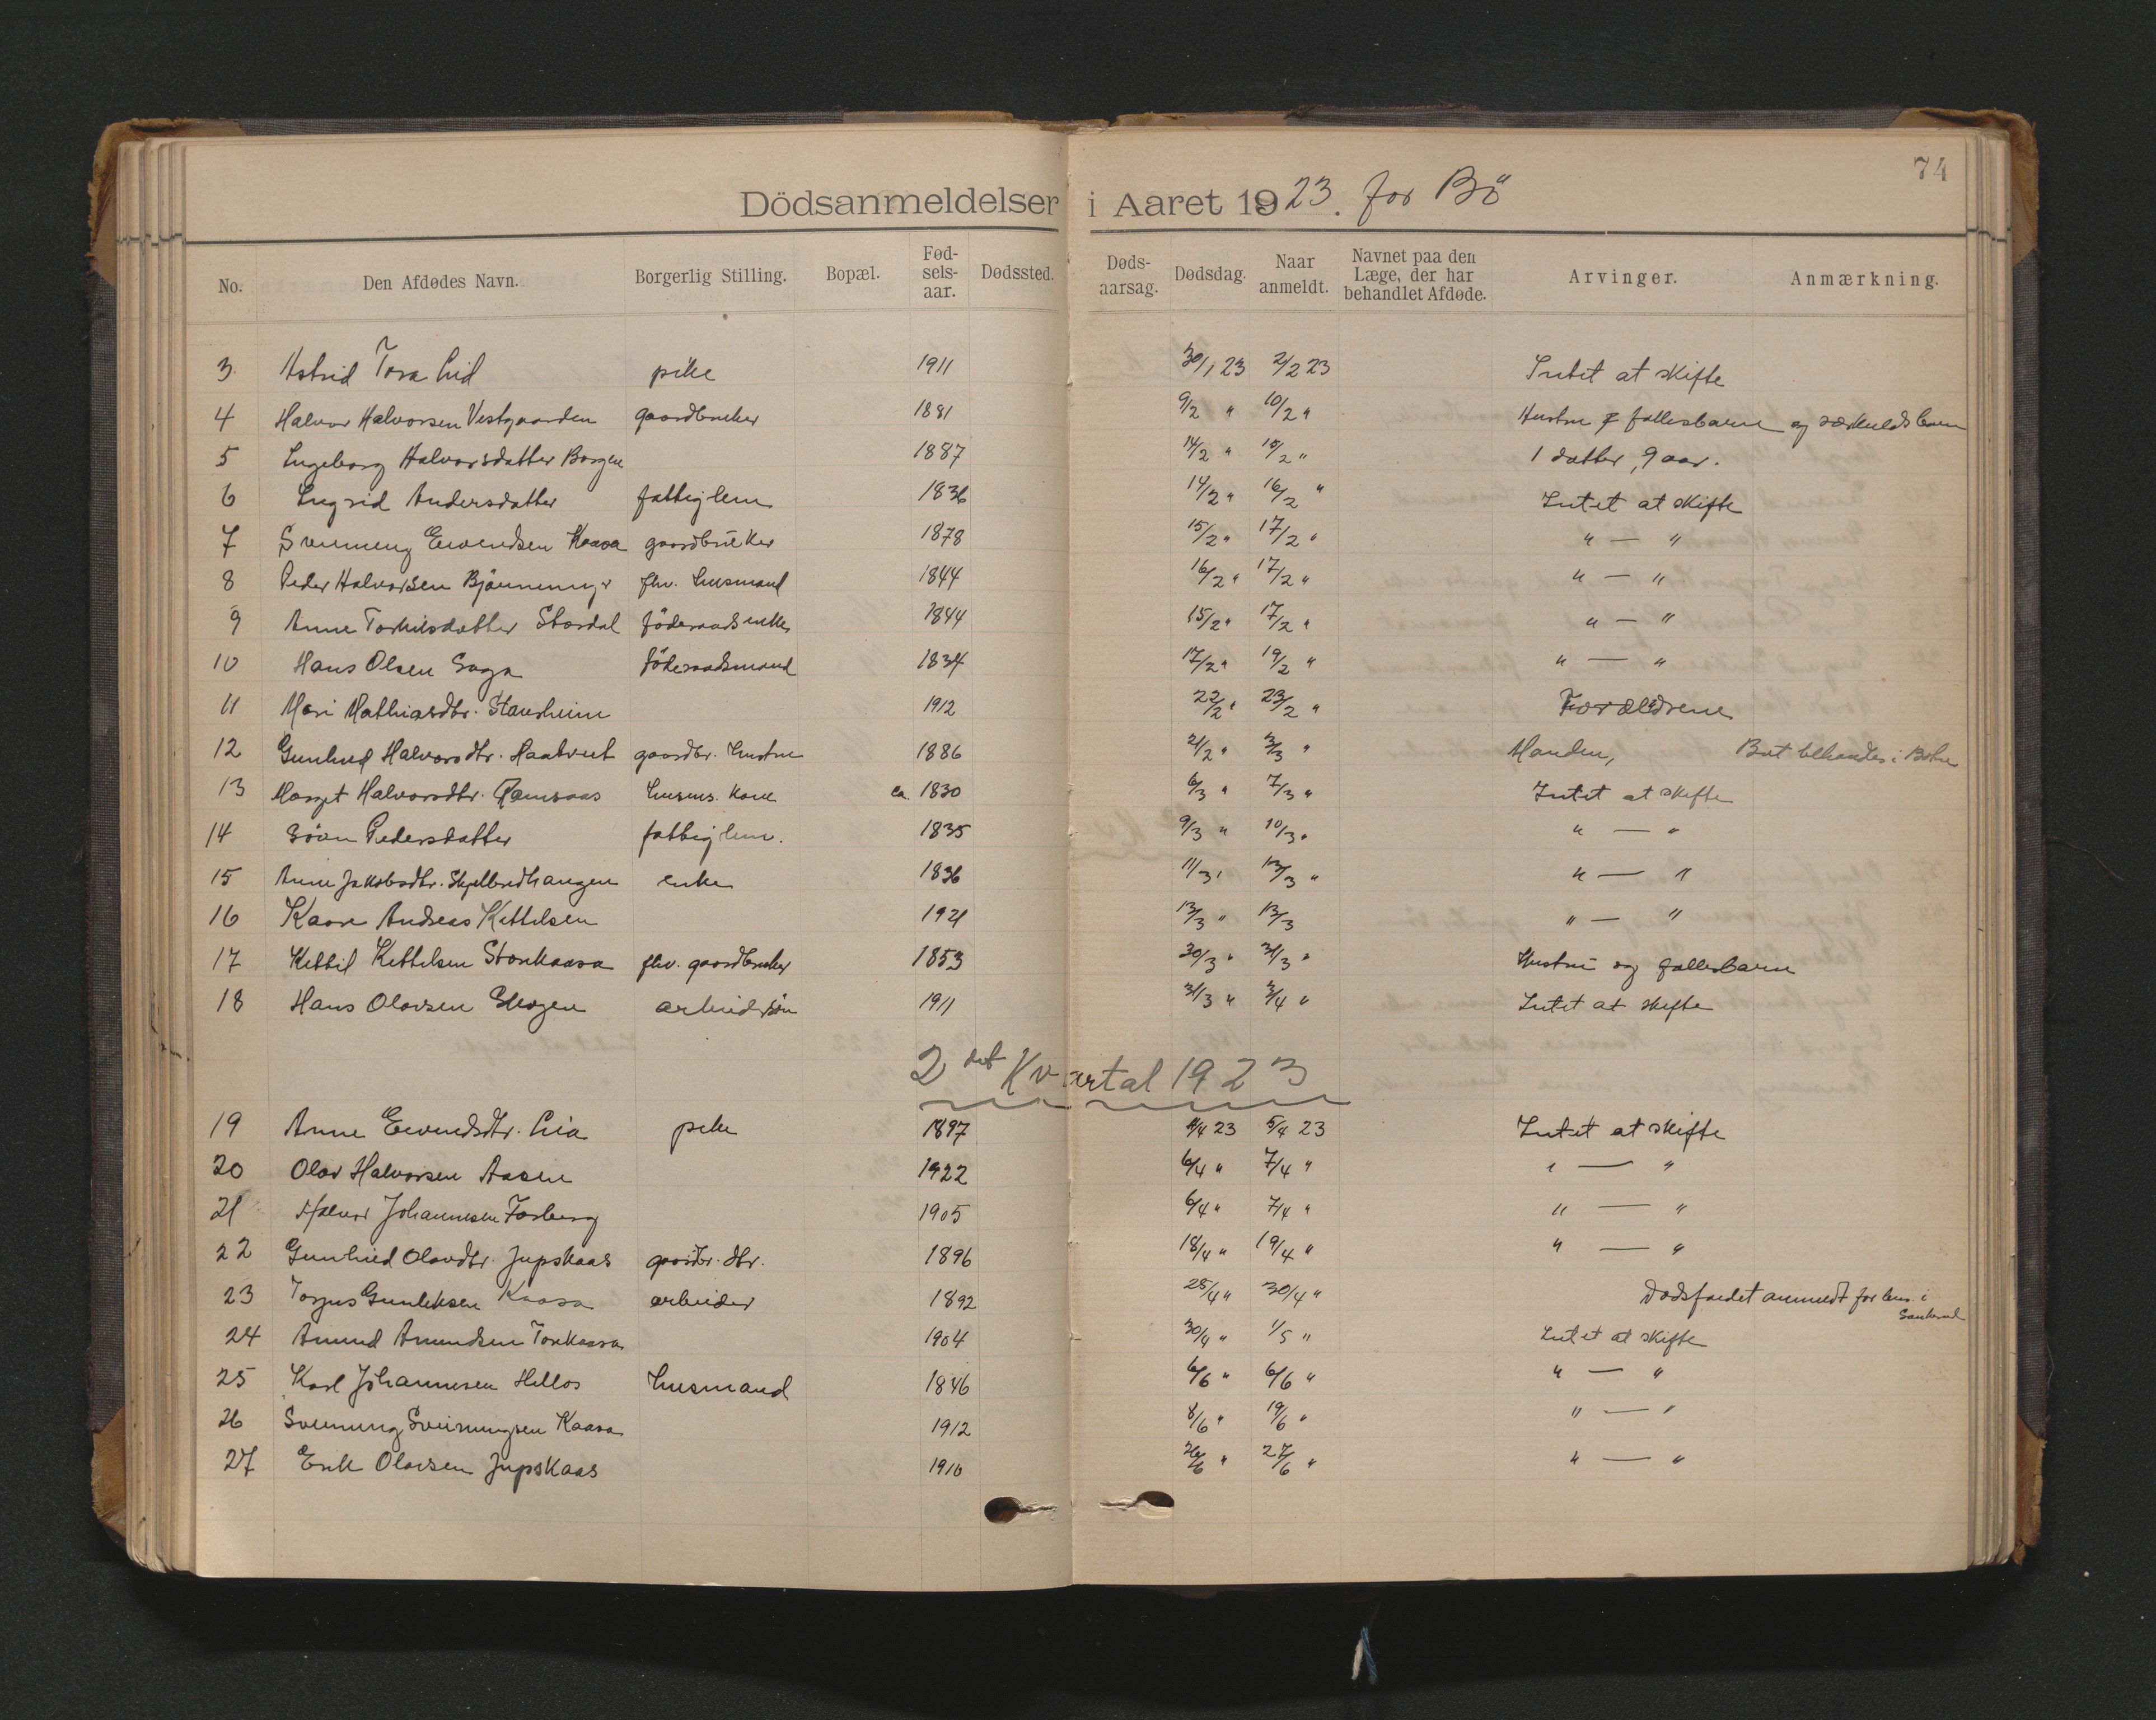 74
Dödsanmeldelser i Aaret 1923. for Bö
No. Den Afdødes Navn. Borgerlig Stilling. Bopæl. Fød-sels-aar. Dødssted. Døds-aarsag. Dødsdag. Naar anmeldt. Navnet paa den Læge, der har behandlet Afdøde. Arvinger. Anmærkning.
3 Astrid Tora Lid pike 1911 30/1 23 2/2 23 Intet at skifte
4 Halvor Halvorsen Vestgaarden gaardbruker 1881 9/2 " 10/2 " Hustru & fællesbarn og særkuldsbarn
5 Ingeborg Halvorsdatter Borgen 1887 14/2 " 15/2 " 1 datter, 9 aar.
6 Ingrid Andersdatter fattiglem 1836 14/2 " 16/2 " Intet at skifte
7 Sveinung Eivendsen Kaasa gaardbruker 1878 15/2 " 17/2 " " — "
8 Peder Halvorsen fhv. husmand 1844 16/2 " 17/2 " " — "
9 Anne Torkilsdatter Stordal föderaadsenke 1844 15/2 " 17/2 " " — "
10 Hans Olsen Saga föderaadsmand 1834 17/2 " 19/2 " " — "
11 Mari Mathiasdtr. Stausheim 1912 22/2 " 23/2 " Forældrene
12 Gunhild Halvorsdtr. Haatveit gaardbr. hustru 1886 21/2 " 3/3 " Manden, Bot behandles i Bohus
13 Margit Halvorsdtr. husms. kone ca. 1830 6/3 " 7/3 " Intet at skifte
14 Pedersdatter fattiglem. 1835 9/3 " 10/3 " " — "
15 Anne Jakobsdtr. Skjelbredhaugen enke 1836 11/3 " 13/3 " " — "
16 Kaare Andreas Kittilsen 1921 13/3 " 13/3 " — "
17 Kittil Kittilsen Storkaasa fhv. gaardbruker 1853 30/3 " 31/3 " Hustru og fællesbarn
18 Hans Olavsen Skogen arbeidersön 1911 31/3 " 3/4 " Intet at skifte
2det Kvartal 1923
19 Anne Eivendsdtr. Lia pike 1897 4/4 23 5/4 23 Intet at skifte
20 Olav Halvorsen Aasen 1922 6/4 " 7/4 " " — "
21 Halvor Johannesen Forberg 1905 6/4 " 7/4 " " — "
22 Gunhild Olavdtr. Jupskaas gaardbr. dtr. 1896 18/4 " 19/4 " " — "
23 Torjus Gunleksen Kaasa arbeider 1892 25/4 " 30/4 " Dödsfaldet anmeldt for lens. i Sauherad
24 Amund Amundsen Torkaasa 1904 30/4 " 1/5 " Intet at skifte
25 Karl Johannesen Hellos husmand 1846 6/6 " 6/6 " " — "
26 Sveinung Sveinungsen Kaasa 1912 8/6 " 19/6 " " — "
27 Erik Olavsen Jupskaas 1910 26/6 " 27/6 " " — "